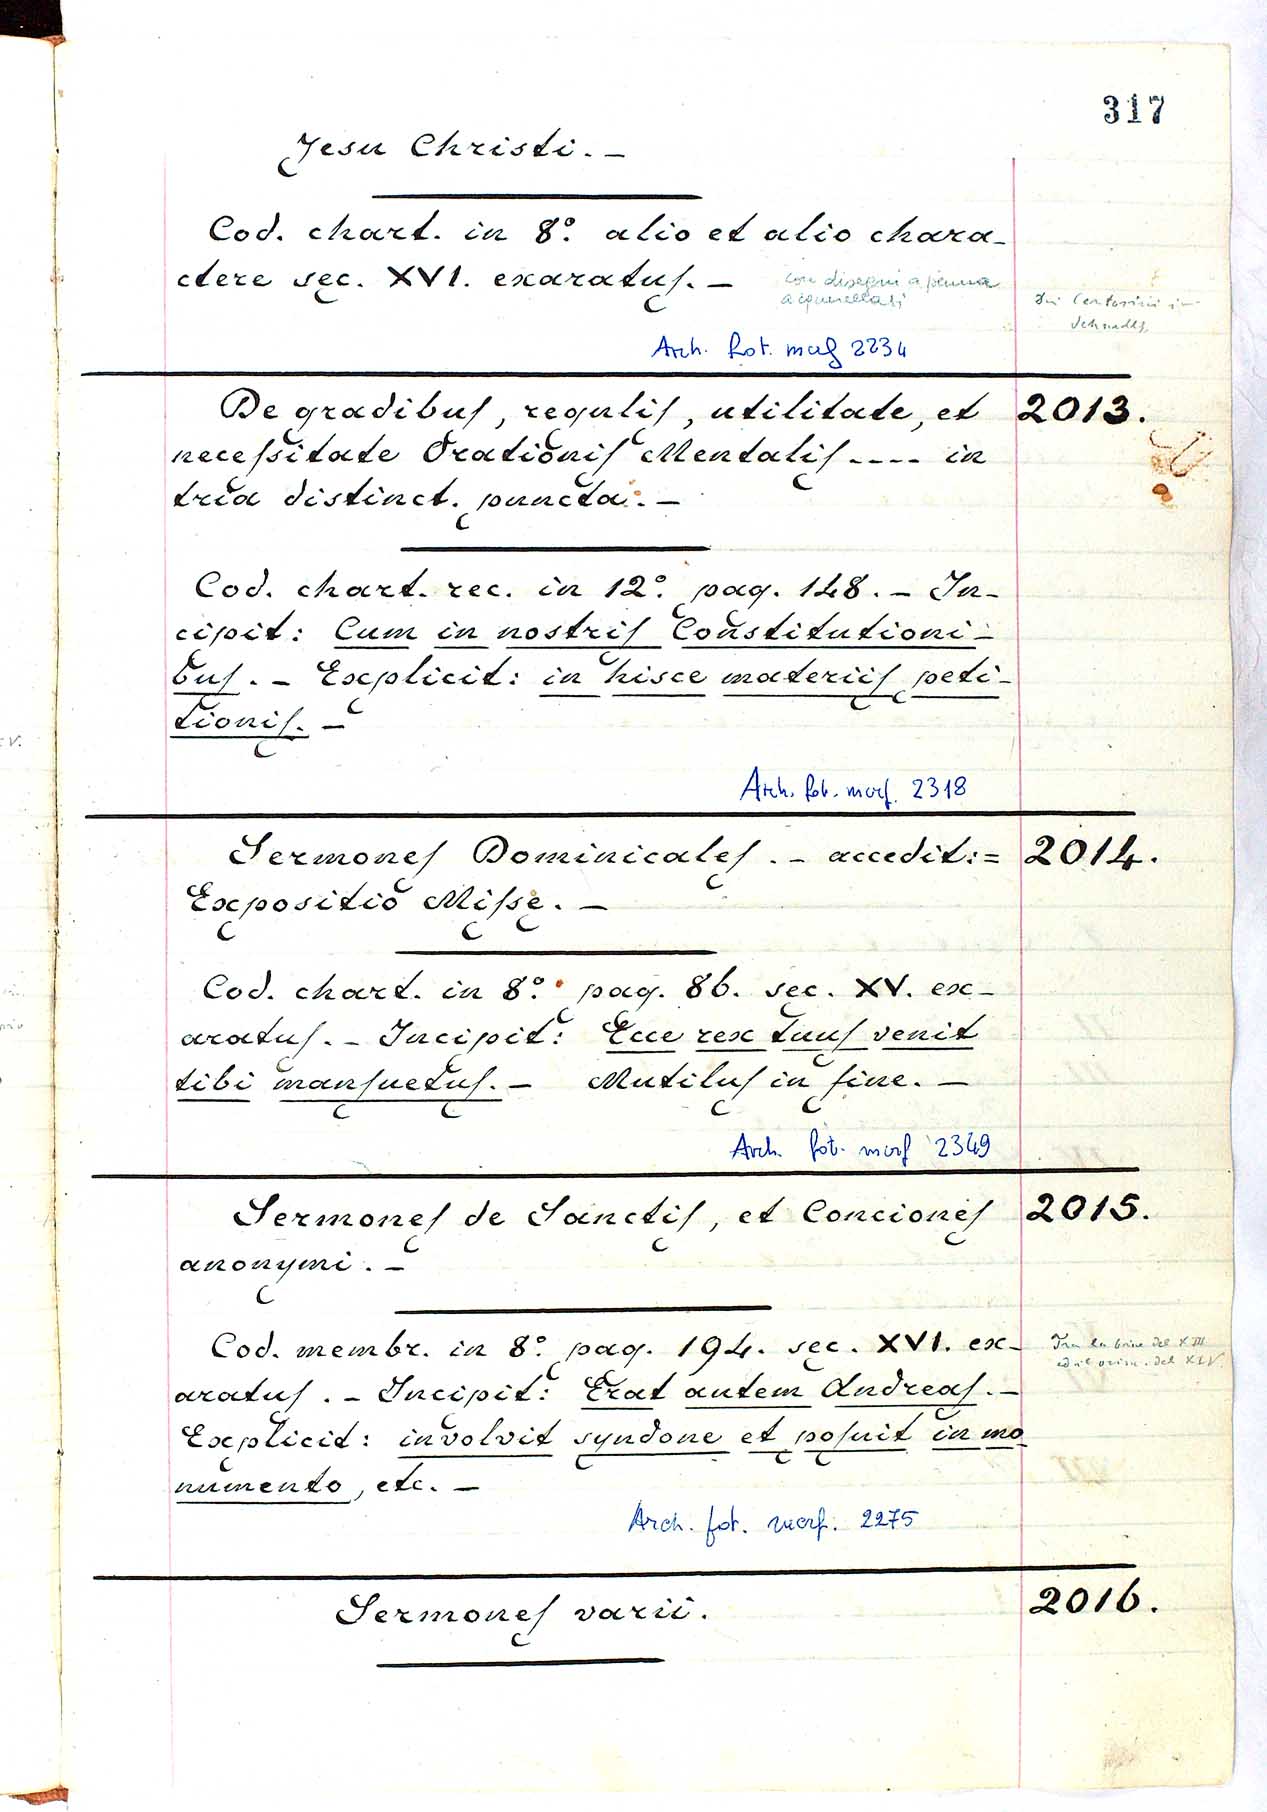 317
Jesu Christi. -
Cod. chart. in 8º. alio et alio chara-
ctere sęc. XVI. exaratus. -
con disegni a penna
acquerellati
Arch. fot. mss 2234
De gradibus, regulis, utilitate, et 2013.
necessitate Orationis Mentalis .... in
tria distinct. puncta. -
Cod. chart. rec. in 12º. pag. 148. - In-
cipit: Cum in nostris Constitutioni-
bus. - Explicit: in hisce materiis peti-
tionis. -
Arch. fot. mss. 2318
Sermones Dominicales. - accedit:= 2014.
Expositio Missę. -
Cod. chart. in 8º. pag. 86. sec. XV. ex-
aratus. - Incipit: Ecce rex tuus venit
tibi mansuetus. - Mutilus in fine. -
Arch. fot. mss 2349
Sermones de Sanctis, et Conciones 2015.
anonymi. -
Cod. membr. in 8º. pag. 194. sec. XVI. ex-
Tra la fine del XIII
ed il prin. del XIV.
aratus. - Incipit: Erat autem Andreas. -
Explicit: involvit syndone et posuit in mo
numento, etc. -
Arch. fot. mss. 2275
Sermones varii. 2016.